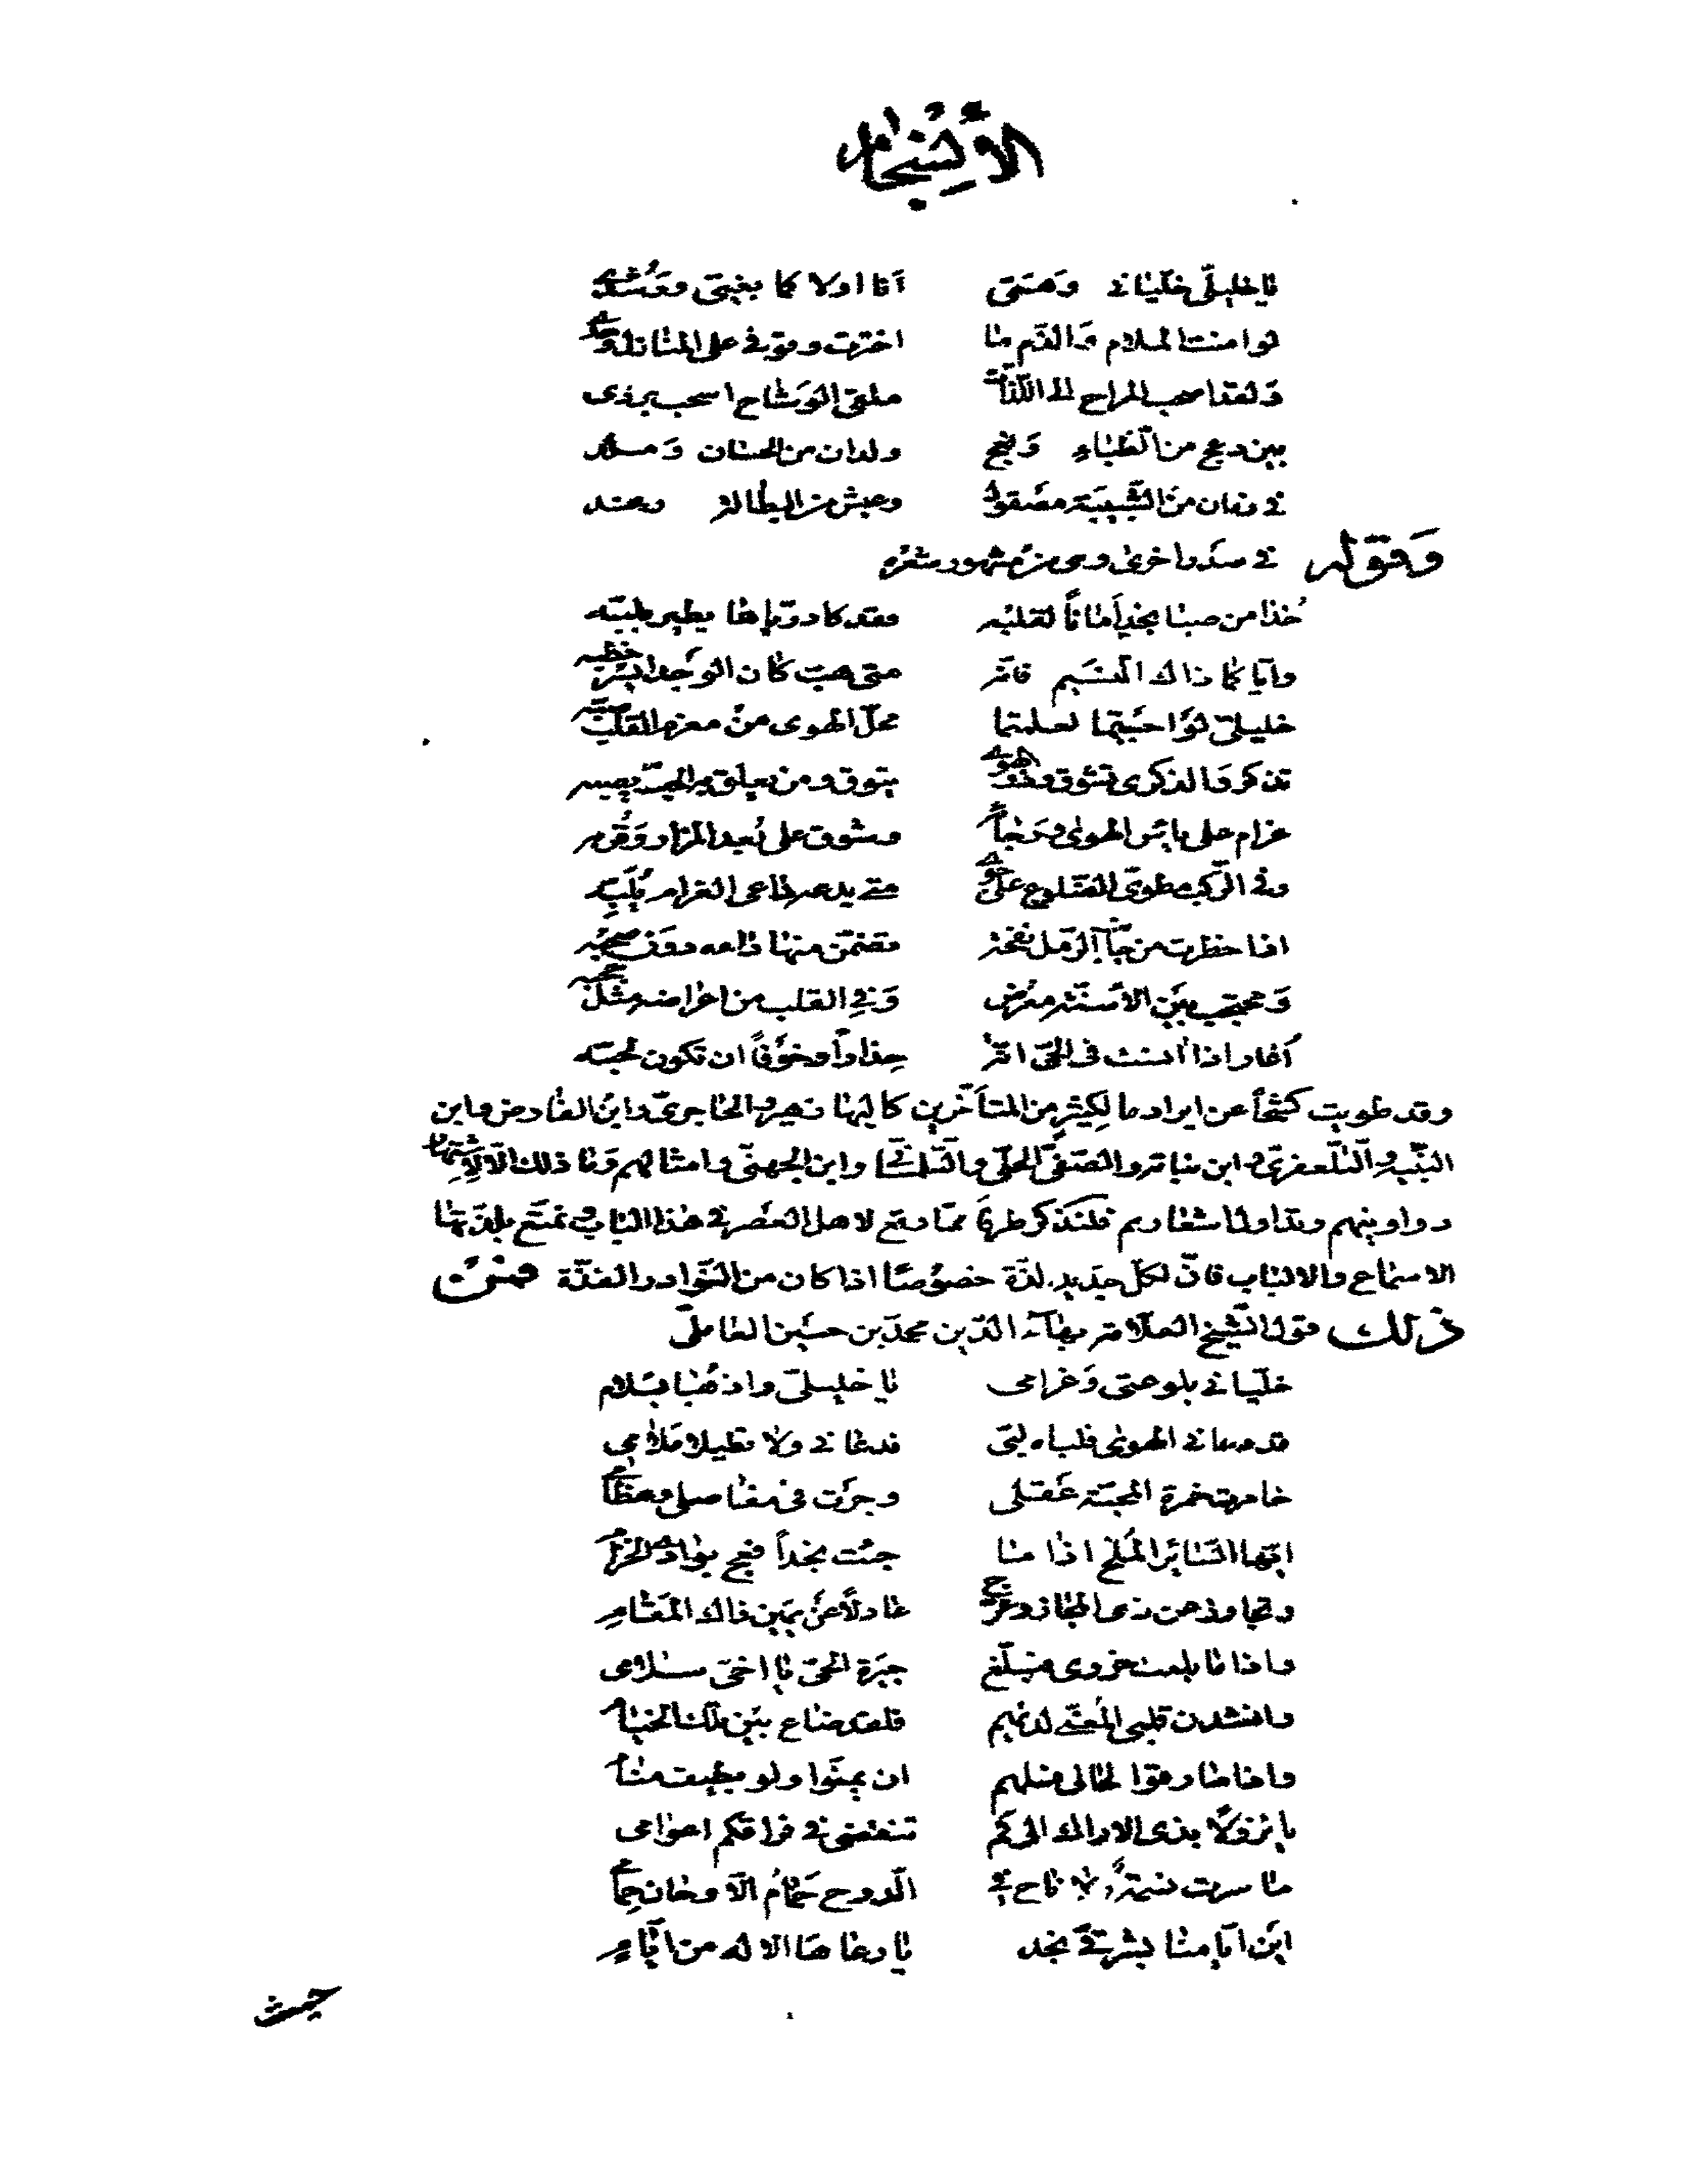 الأنسجام
يا خليليّ خلّياني وهمّى انا اولا كما بغيتى ورشدى
لو امنت الملام والذم ما اخترت وقوفى على المنازل وحدى
ولقد اصحب المراح الى اللذات ملقى الوشاح اسحب بردى
بين دعج من الظباء ولدان من الحسان ومرد
فى زمان من الشبيبة مصقول وعيش من البطالة رغد
وقوله فى صدر اخرى وهى من مشهور شعره
خذا من صبا نجد أمانًا لقلبه فقد كاد ريّاها يطير بلبّه
وايّاكما ذاك النسيم فانه متى هبّ كان الوجد ايسر خطبه
خليليّ لو احببتما لعلمتما محلّ الهوى من مغرم القلب صبّه
تذكر والذكرى تشوق وذو الهوى يتوق ومن يعلق به الحبّ يصبه
غرام على يأس الهوى ورجائه وشوق على بُعد المزار وقربه
وفى الركب مطوىّ الضلوع على جوى متى يدعه داعى الغرام يلبّه
اذا خطرت من جانب الرمل نفحة تضمّن منها داءه دون صحبه
ومحتجب بين الاسنّة معرض وفى القلب من اعراضه مثل حجبه
أغار اذا آنست فى الحىّ انّة حذارًا وخوفًا ان تكون لحبّه
وقد طويت كشحًا عن ايراد ما لكثير من المتأخرين كالبها زهير والحاجرىّ وابن الفارض وابن
النبيه والتلعفرىّ وابن نباتة والصفىّ الحلّى و وابن الجهنى وامثالهم وما ذلك الّا لاشتهار
دواوينهم وتداول اشعارهم فلنذكر طرفًا ممّا وقع لاهل العصر فى هذا الباب تمتّع بلذتها
الاسماع والالباب فانّ لكلّ جديد لذّة خصوصًا اذا كان من النوادر الفذّة فمن
ذلك قول الشيخ العلّامة بهاء الدين محمد بن حسين العاملىّ
خلّيانى بلوعتى وغرامى يا خليلىّ واذهبا بسلام
قد دعانى الهوى فلباه لبّى فدعانى ولا تطيلا ملامى
خامرت خمرة المحبّة عقلى وجرت فى مفاصلى وعظامى
ايّها السائر الملحّ اذا ما جئت نجدًا فعج بوادى الخزام
وتجاوز عن ذى المجاز وعرّج عادلًا عن يمين ذاك المقام
واذا ما بلغت حزوى فبلّغ جيرة الحىّ يا اخىّ سلامى
وانشدن قلبى المعنّى لديهم فلقد ضاع بين تلك الخيام
واذا ما رقّوا لحالى فسلهم ان يمنّوا ولو بطيف منام
يا نزولًا بذى الاراك الى كم تنقضى فى فراقكم اعوامى
ما سرت نسمة ولا ناح فى الدوح حمام الّا وحان حمامى
اين ايامنا بشرقىّ نجد يا رعاها الاله من ايّام
حيث